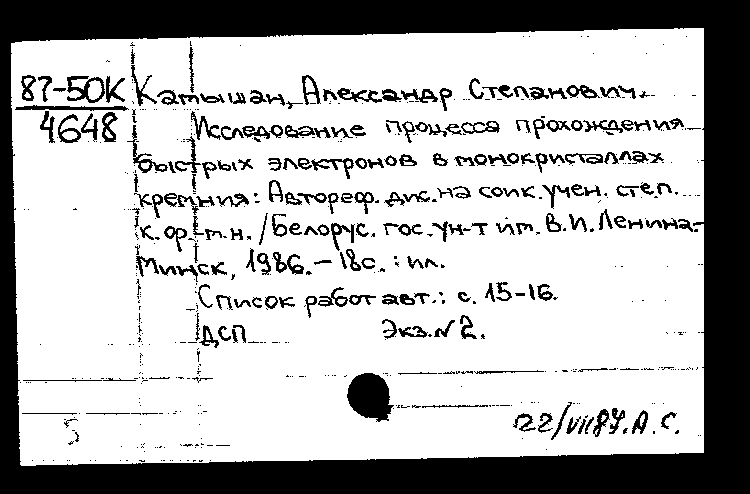 87-50К
4648
Катышан, Александр Степанович.
Исследование процесса прохождения
быстрых электронов в монокристаллах
кремния: Автореф. дис. на соиск. учен. степ.
к. ф.-м. н. / Белорус. гос. ун-т им. В. И. Ленина.-
Минск, 1986. – 18с. : ил.
Список работ авт.: с. 15-16.
ДСП Экз. N 2.
5 22/VII87. А. С.